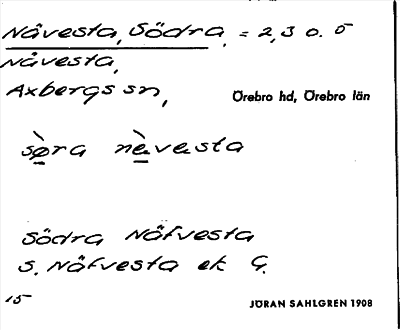 Nåvesta, Södra, = 2,3 o. 5
Nåvesta,
Axbergs sn,
Örebro hd, Örebro län
sø̀ra nàvesta
Södra Nåfvesta
S. Nåfvesta ek G.
15
JÖRAN SAHLGREN 1908